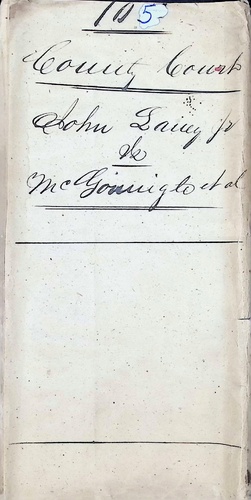 105
County Court
John Laney jr
vs
McGonnigle et al